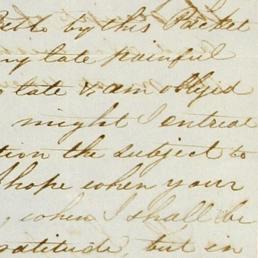 by this Packet
my late painful
late & am obliged
might I entreat
tion the subject to
hope when your
, when I shall be
gratitude, but in